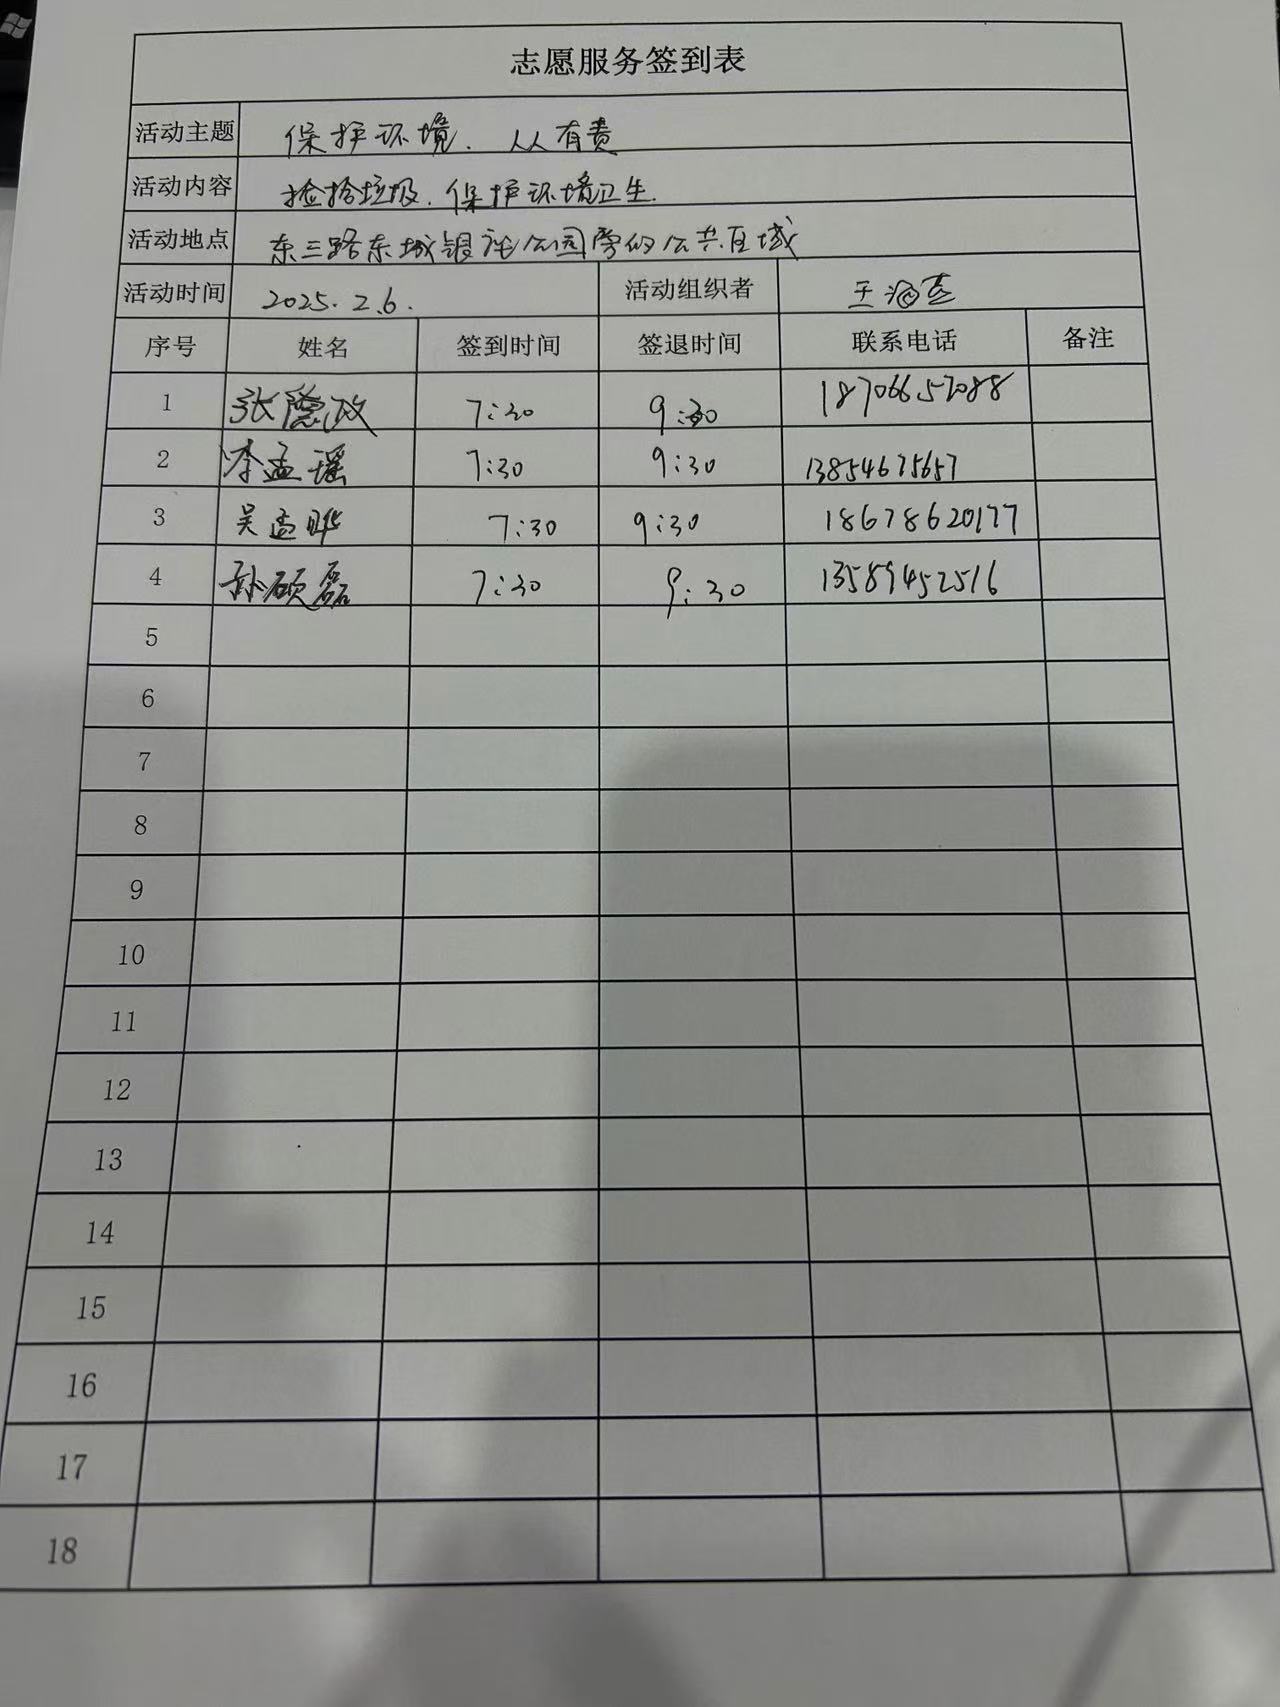 志愿服务签到表
活动主题 保护环境. 人人有责
活动内容 捡拾垃圾. 保护环境卫生.
活动地点 东三路东城银座公园旁的公共区域
活动时间 2025.2.6. 活动组织者 王海燕
序号 姓名 签到时间 签退时间 联系电话 备注
1 张隐政 7:30 9:30 18706657088
2 李孟瑶 7:30 9:30 13854675657
3 吴孟晔 7:30 9:30 18678620177
4 孙硕磊 7:30 9:30 13589452516
5
6
7
8
9
10
11
12
13
14
15
16
17
18